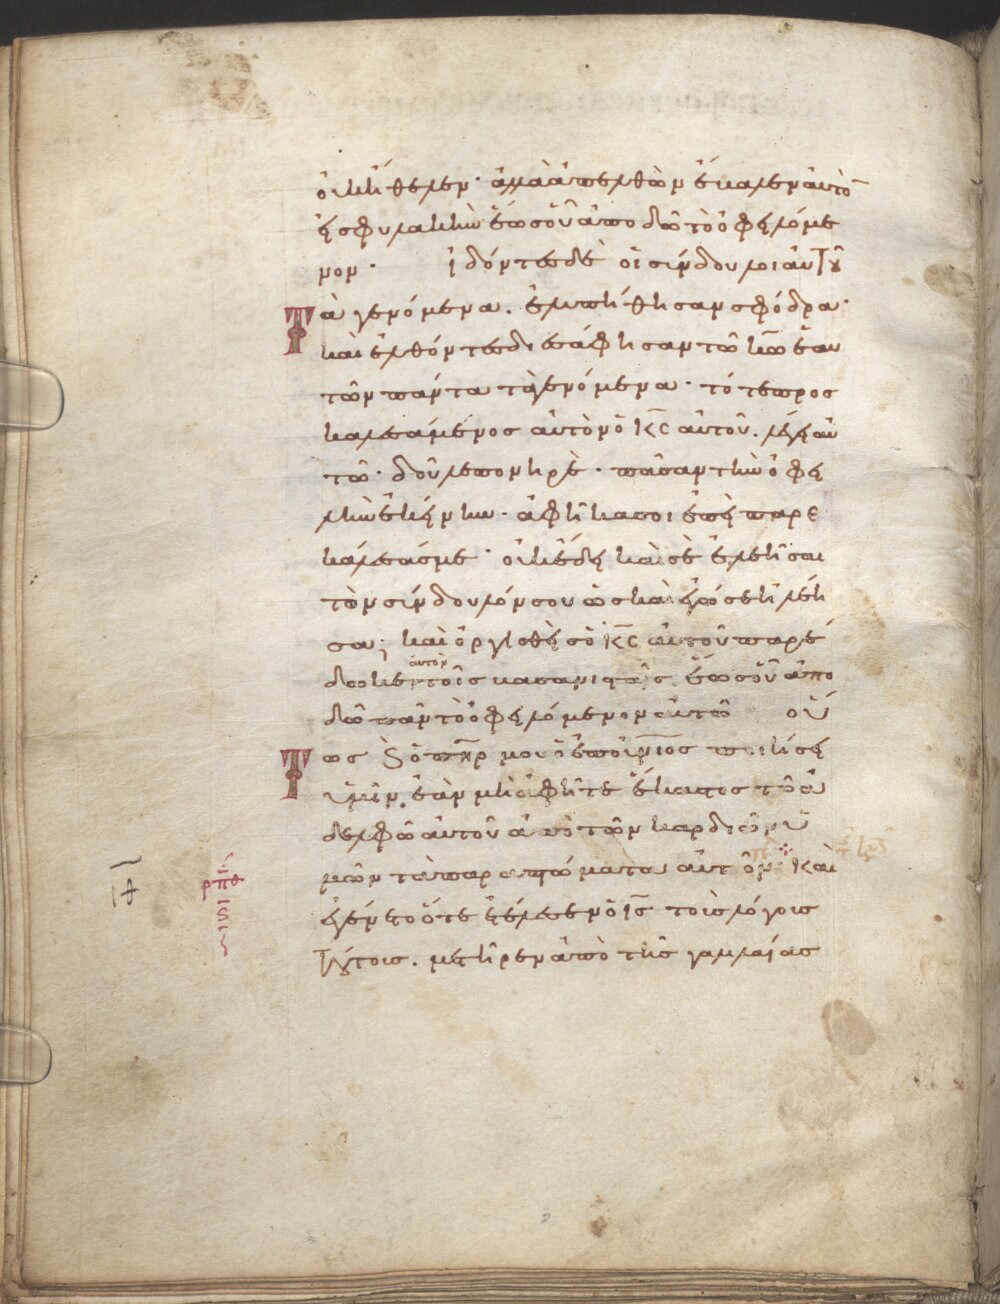 οὐκ ἤθελεν· ἀλλὰ ἀπελθὼν ἔβαλεν αὐτὸ
εἰς φυλακὴν ἕως οὗ ἀποδῶ τὸ ὀφειλόμε
νον· ἰδόντες δὲ οἱ σύνδουλοι αὐτοῦ
τὰ γενόμενα. ἐλυπήθησαν σφόδρα·
καὶ ἐλθόντες διεσάφησαν τῶ κ͞ω ἑαυ
τῶν πάντα τὰ γενόμενα· τότε προσ
καλεσάμενος αὐτὸν ὁ κ͞ς αὐτοῦ. λέγει αυ
τῶ· δοῦλε πονηρὲ· πᾶσαν τὴν ὀφει
λὴν ἐκείνην· ἀφῆκά σοι ἐπεὶ παρε
κάλεσάς με· οὐκ ἔδει καὶ σὲ ἐλεῆσαι
τὸν σύνδουλόν σου ὡς καὶ ἐγώ σε ἠλέη
σα; καὶ ὀργισθεὶς ὁ κ͞ς αὐτοῦ παρέ
αυτὸν
δωκεν τοῖς βασανισταῖς. ἕως οὗ ἀπο
δῶ πᾶν τὸ ὀφειλόμενον αὐτῶ οὕ
τως καὶ ὁ π͞ηρ μου ὁ ἐπουράνιος ποιήσει
ὑμῖν. ἐὰν μὴ ἀφῆτε ἕκαστος τῶ ἀ
δελφῶ αὐτοῦ ἀπὸ τῶν καρδιῶν ὑ
μῶν τὰ παραπτώματα αὐτῶν· Καὶ
ἐγένετο ὅτε ἐτέλεσεν ὁ ι͞ς τοὺς λόγους
τούτους. μετῆρεν ἀπὸ τῆς γαλιλαίας
ι͞θ
ρπθ